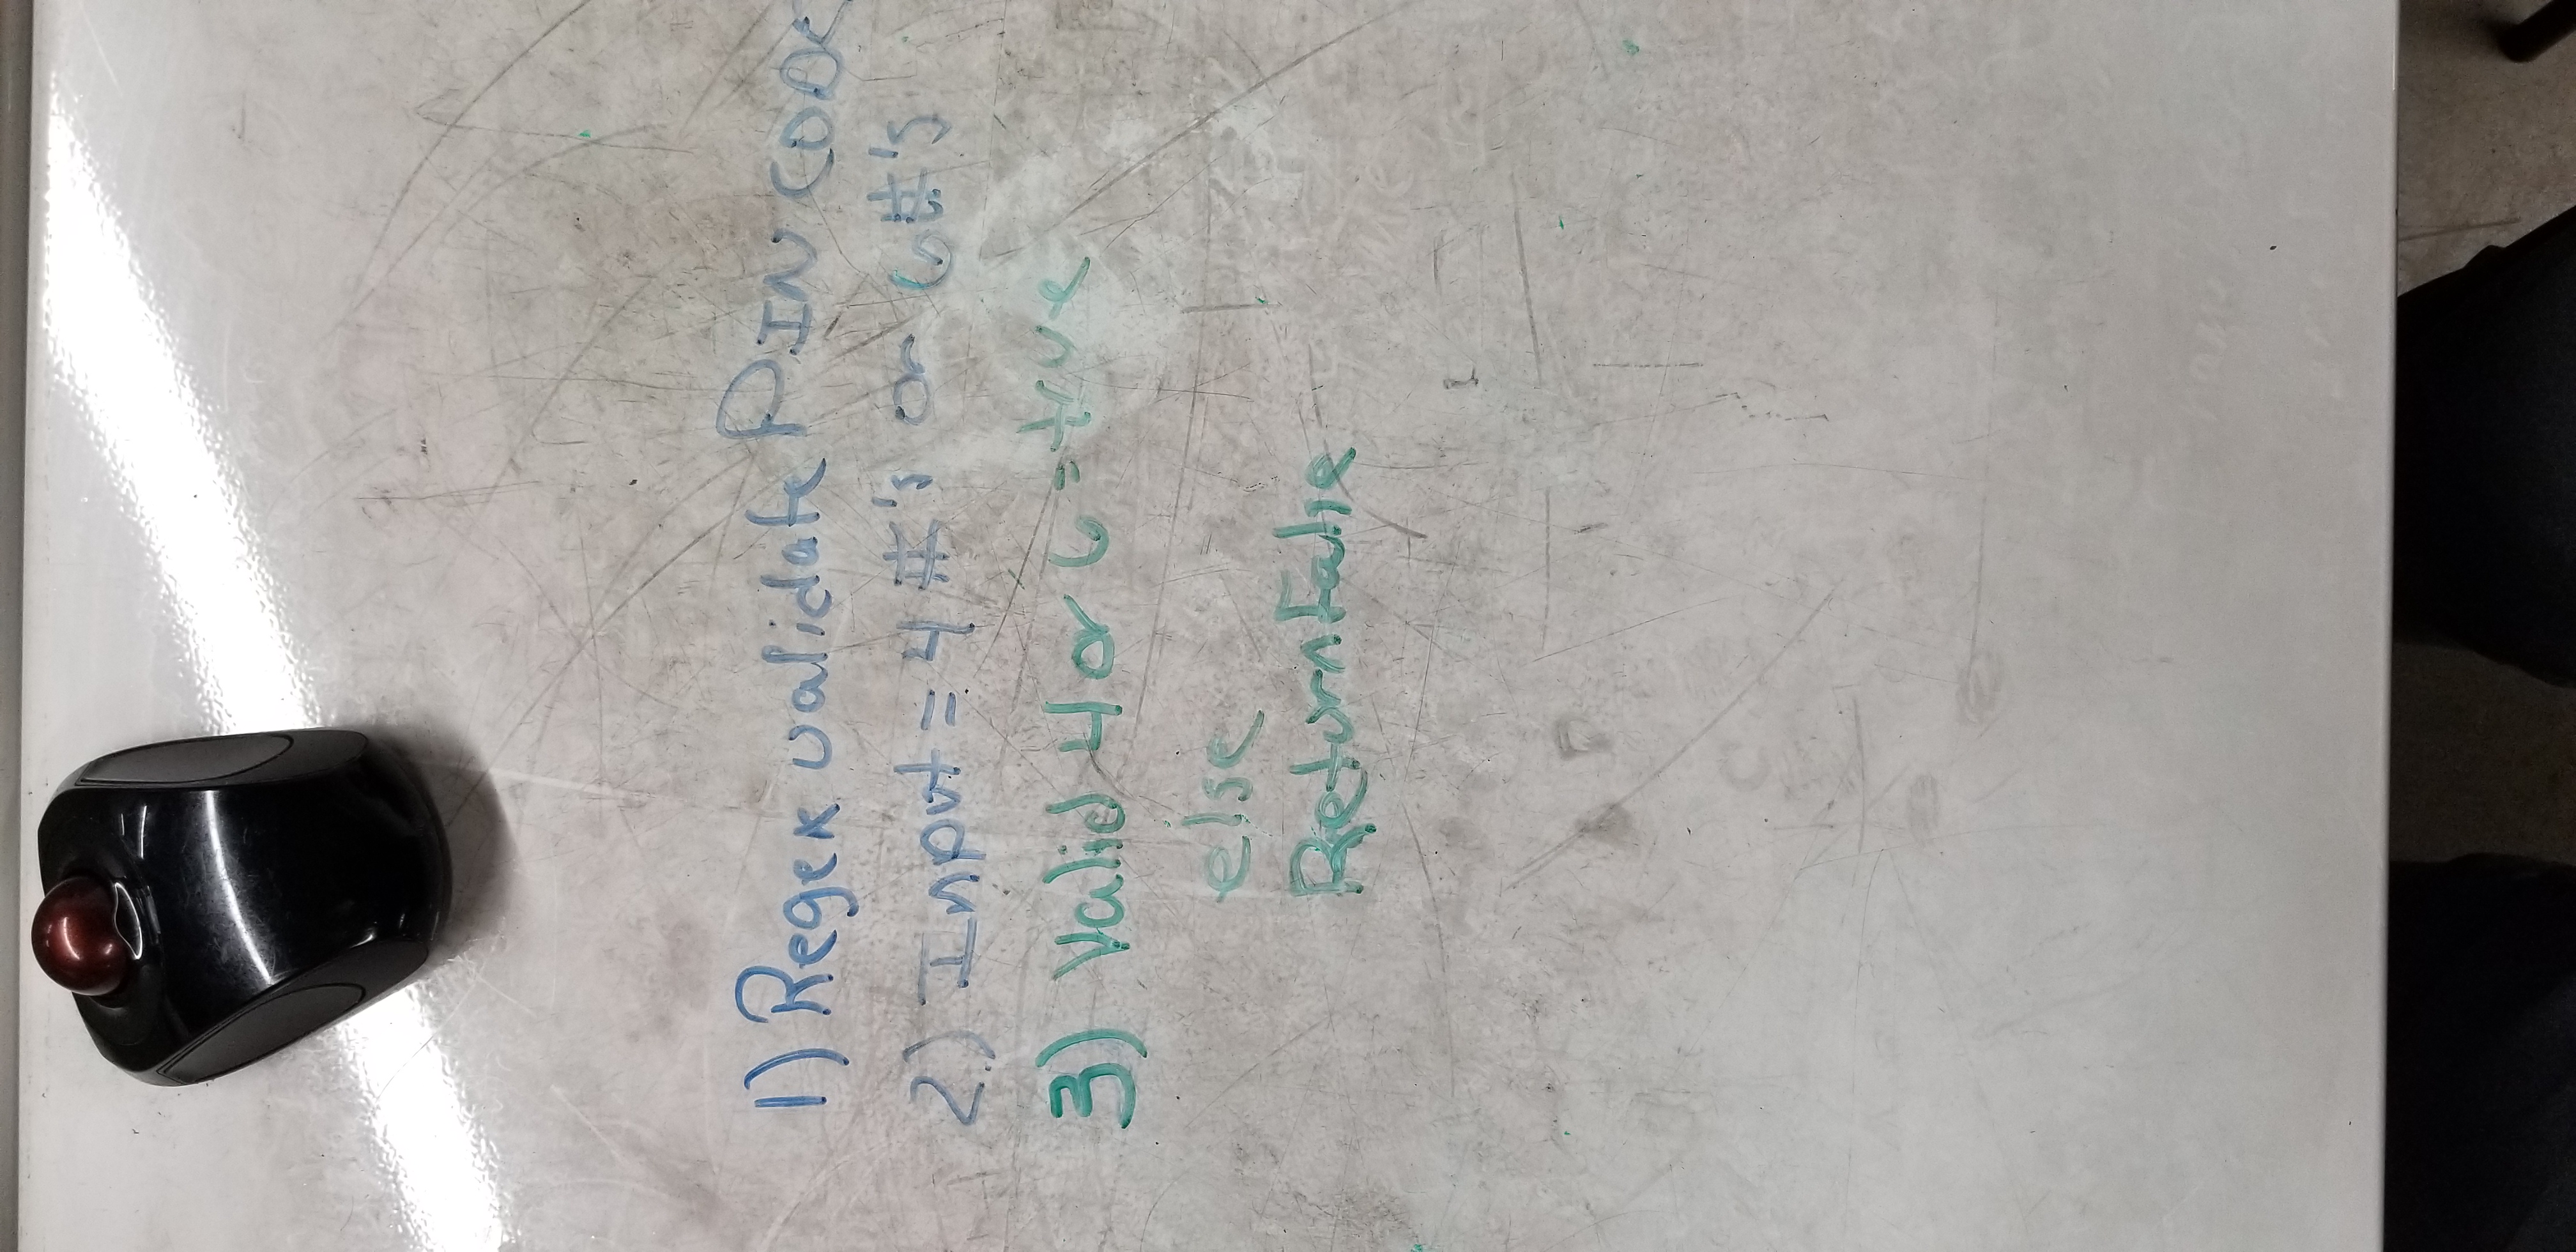 1) Regex validate PIN CODE
2.) Input = 4 #'s or 6 #'s
3) Valid 4 or 6 = true
else
Return False